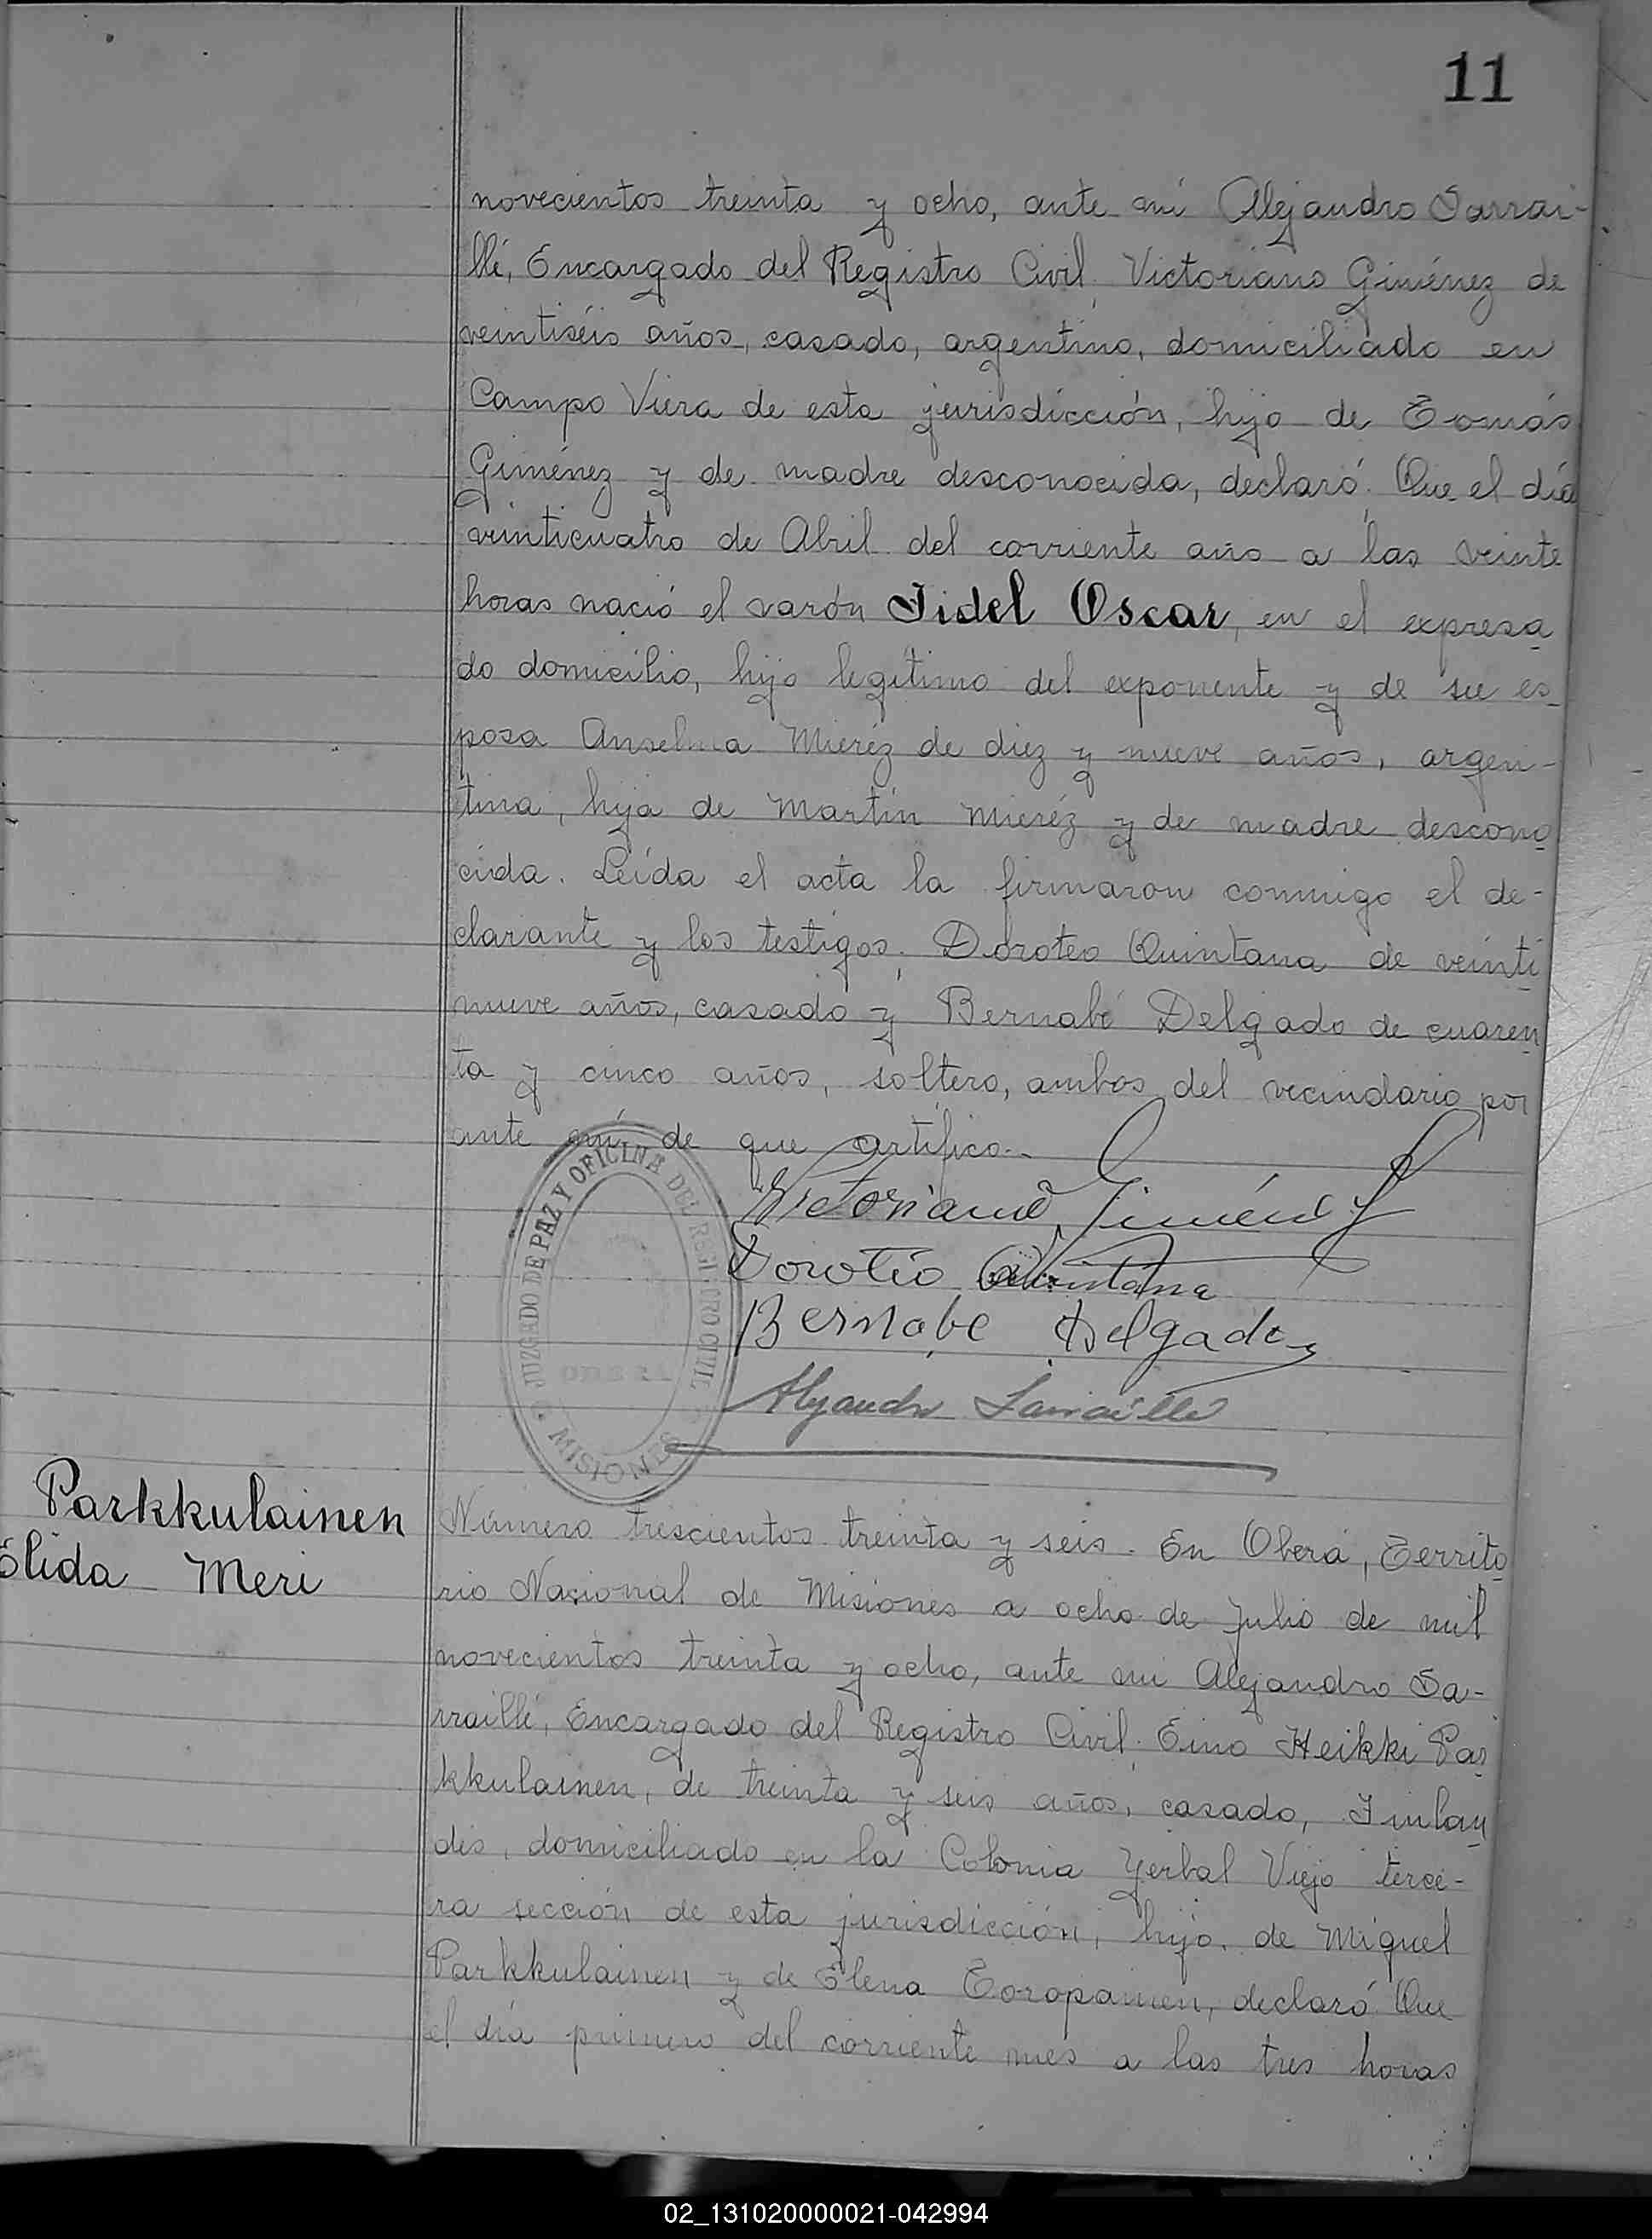 11
novecientos treinta y ocho, ante mí Alejandro Sarrai-
llé, Encargado del Registro Civil, Victoriano Giménez de
veintiséis años, casado, argentino, domiciliado en
Campo Viera de esta jurisdicción, hijo de Tomás
Giménez y de madre desconocida, declaró: Que el día
veinticuatro de Abril del corriente año a las veinte
horas nació el varón Fidel Oscar, en el expresa
do domicilio, hijo legítimo del exponente y de su es-
posa Anselma Mieréz de diez y nueve años, argen-
tina, hija de Martín Mieréz y de madre descono
cida. Leída el acta la firmaron conmigo el de-
clarante y los testigos: Doroteo Quintana de veinti
nueve años, casado y Bernabé Delgado de cuaren
ta y cinco años, soltero, ambos del vecindario por
ante mí de que certifico.-
Victoriano Giménez
Doroteo Quintana
Bernabe Delgado
Alejandro Sarraillé
JUZGADO DE PAZ Y OFICINA DEL REGISTRO CIVIL
OBERA
MISIONES
Parkkulainen
Elida Meri
Número trescientos treinta y seis. En Oberá, Territo
rio Nacional de Misiones a ocho de Julio de mil
novecientos treinta y ocho, ante mi Alejandro Sa-
rraillé, Encargado del Registro Civil: Eino Heikki Par
kkulainen, de treinta y seis años, casado, Finlan
dés, domiciliado en la Colonia Yerbal Viejo terce-
ra sección de esta jurisdicción, hijo de Miguel
Parkkulainen y de Elena Toropainen, declaró: Que
el día primero del corriente mes a las tres horas
02_131020000021-042994